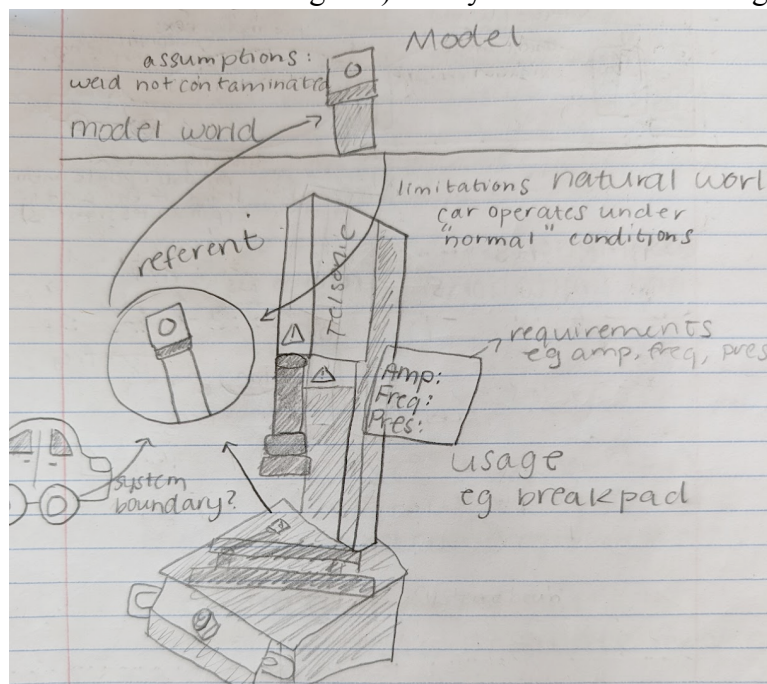 Model
assumptions:
weld not contaminated
model world
limitations natural worl
car operates under
"normal" conditions
referent
Telsonic
requirements
eg amp, freq, pres
Amp:
Freq:
Pres:
usage
eg breakpad
system
boundary?